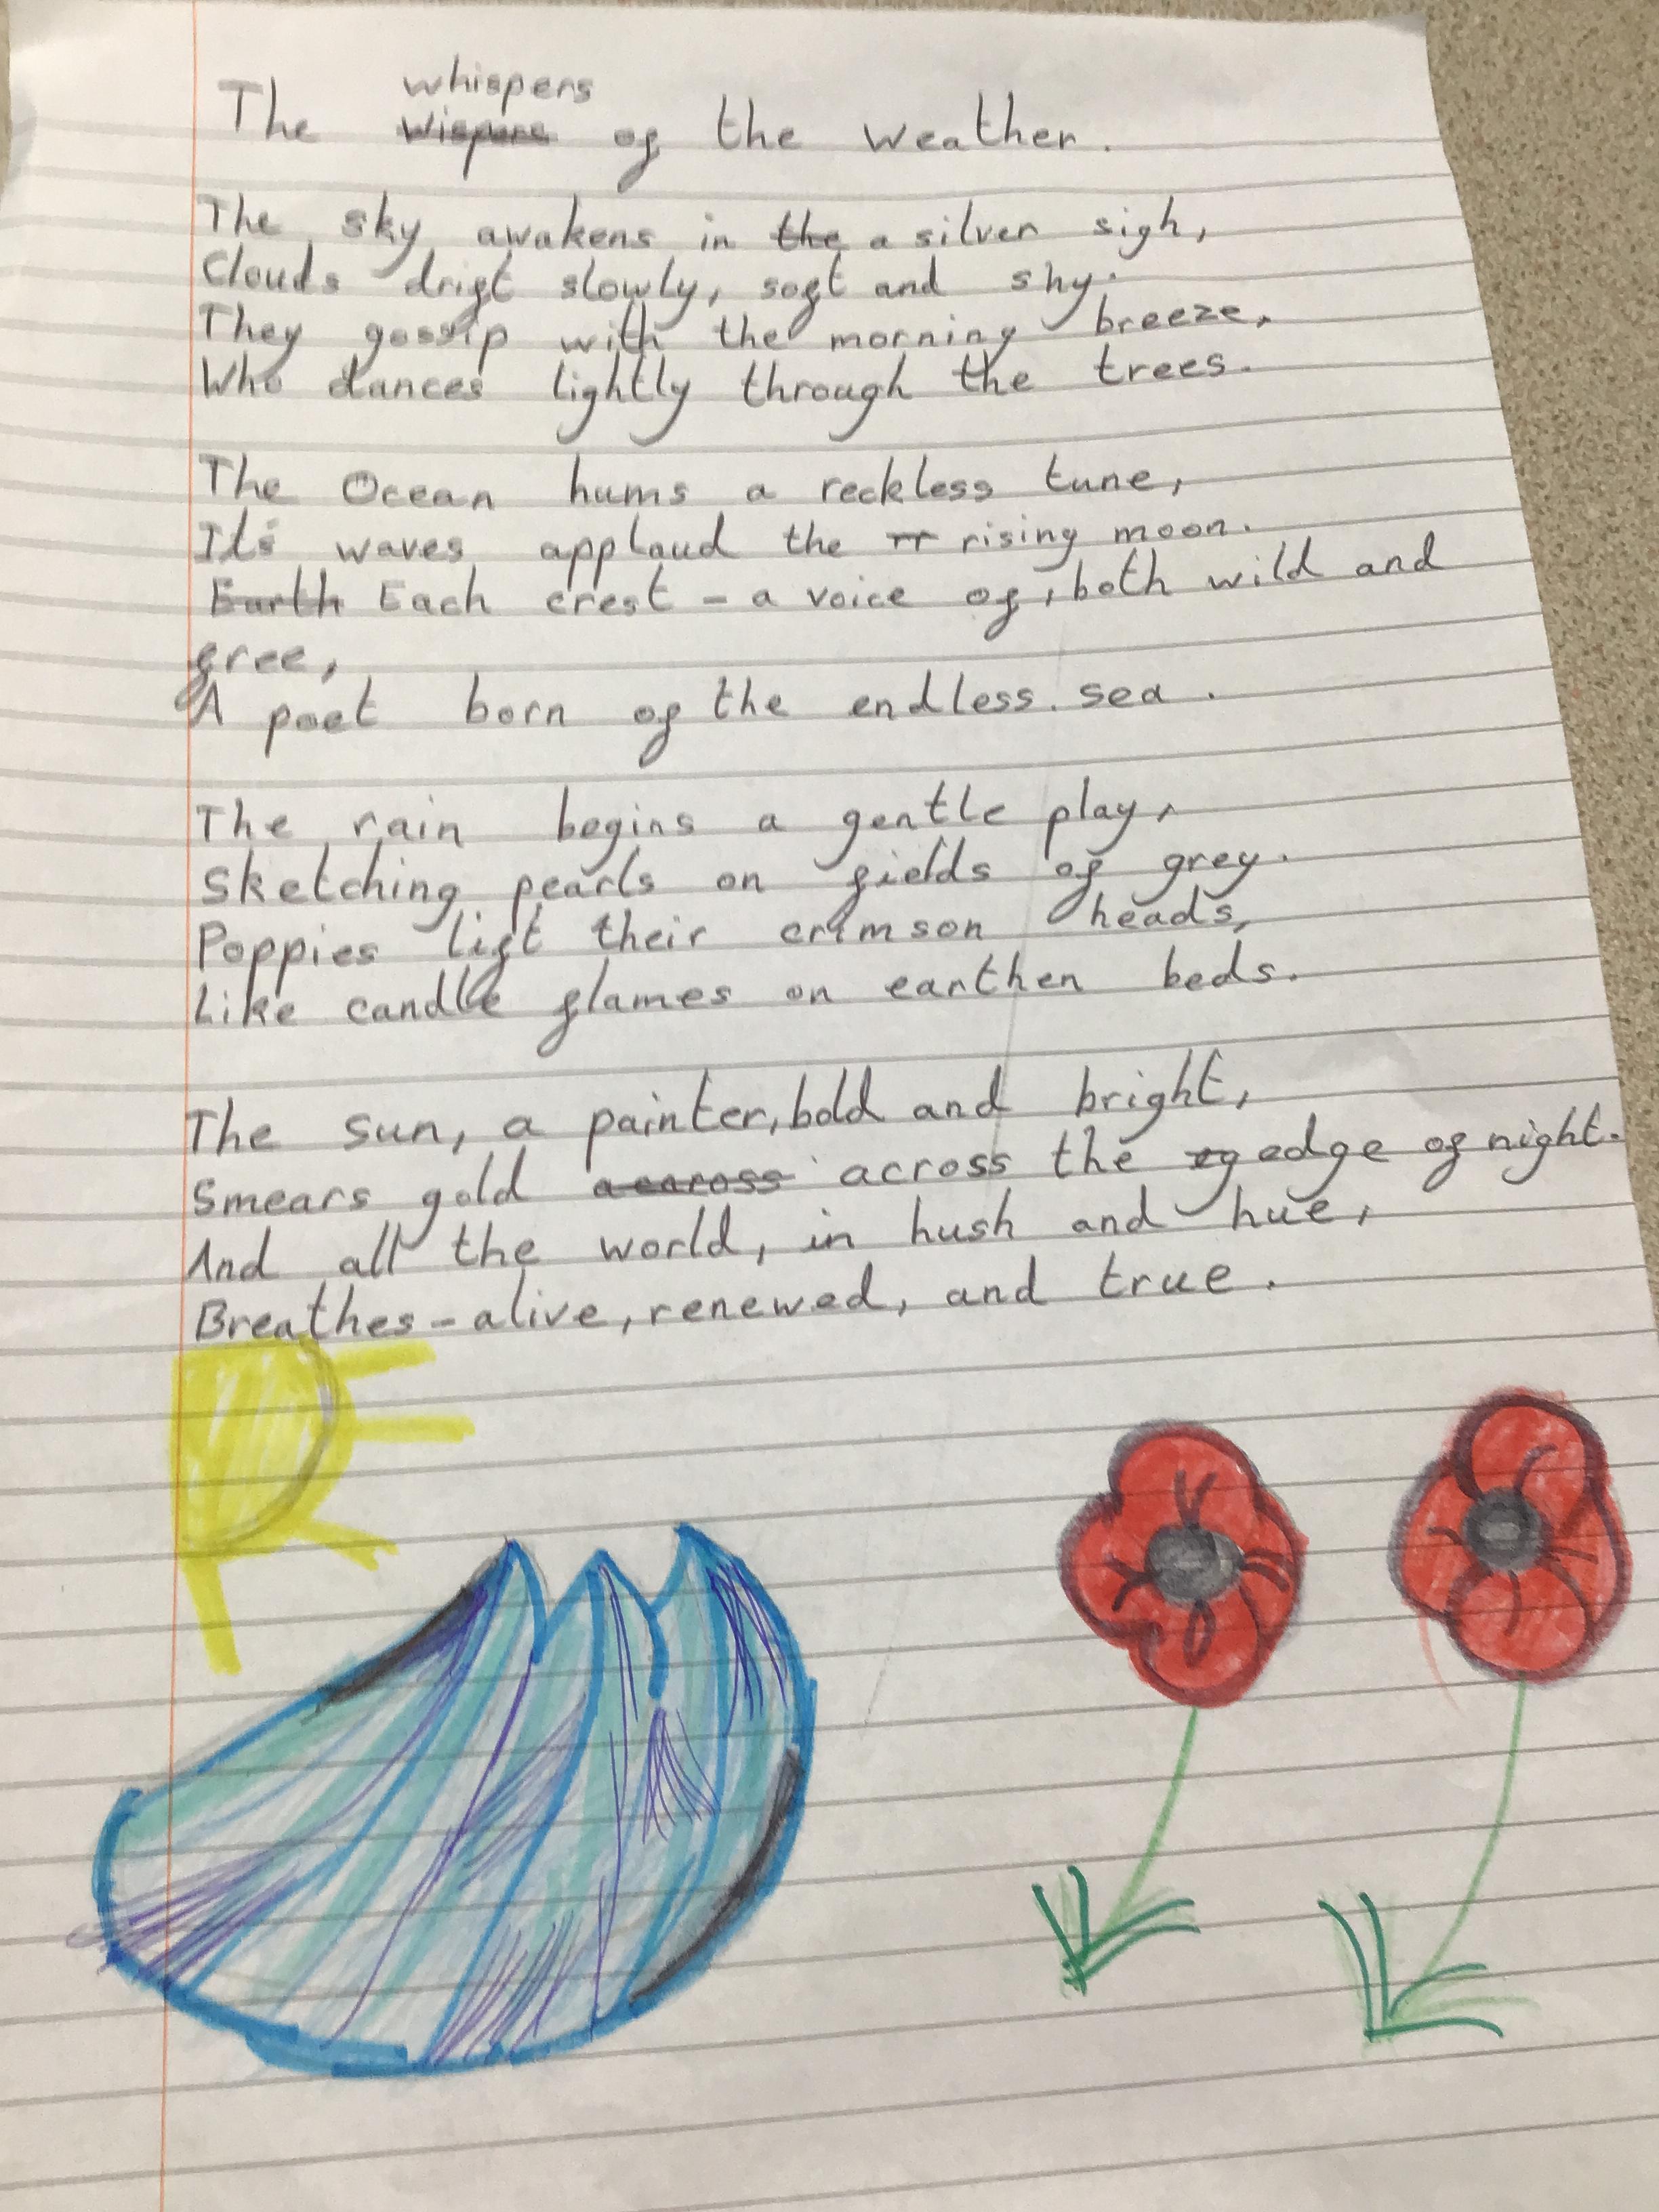 The whispers
~~Wispers~~ of the weather.
The sky awakens in ~~the~~ a silver sigh,
Clouds drift slowly, soft and shy.
They gossip with the morning breeze,
Who dances lightly through the trees.
The Ocean hums a reckless tune,
It's waves applaud the ~~rr~~ rising moon.
~~Earth~~ Each crest - a voice of, both wild and
free,
A poet born of the endless sea.
The rain begins a gentle play,
Sketching pearls on fields of grey.
Poppies lift their crimson heads,
Like candle flames on earthen beds.
The sun, a painter, bold and bright,
Smears gold ~~acaross~~ across the ~~eg~~ edge of night.
And all the world, in hush and hue,
Breathes - alive, renewed, and true.